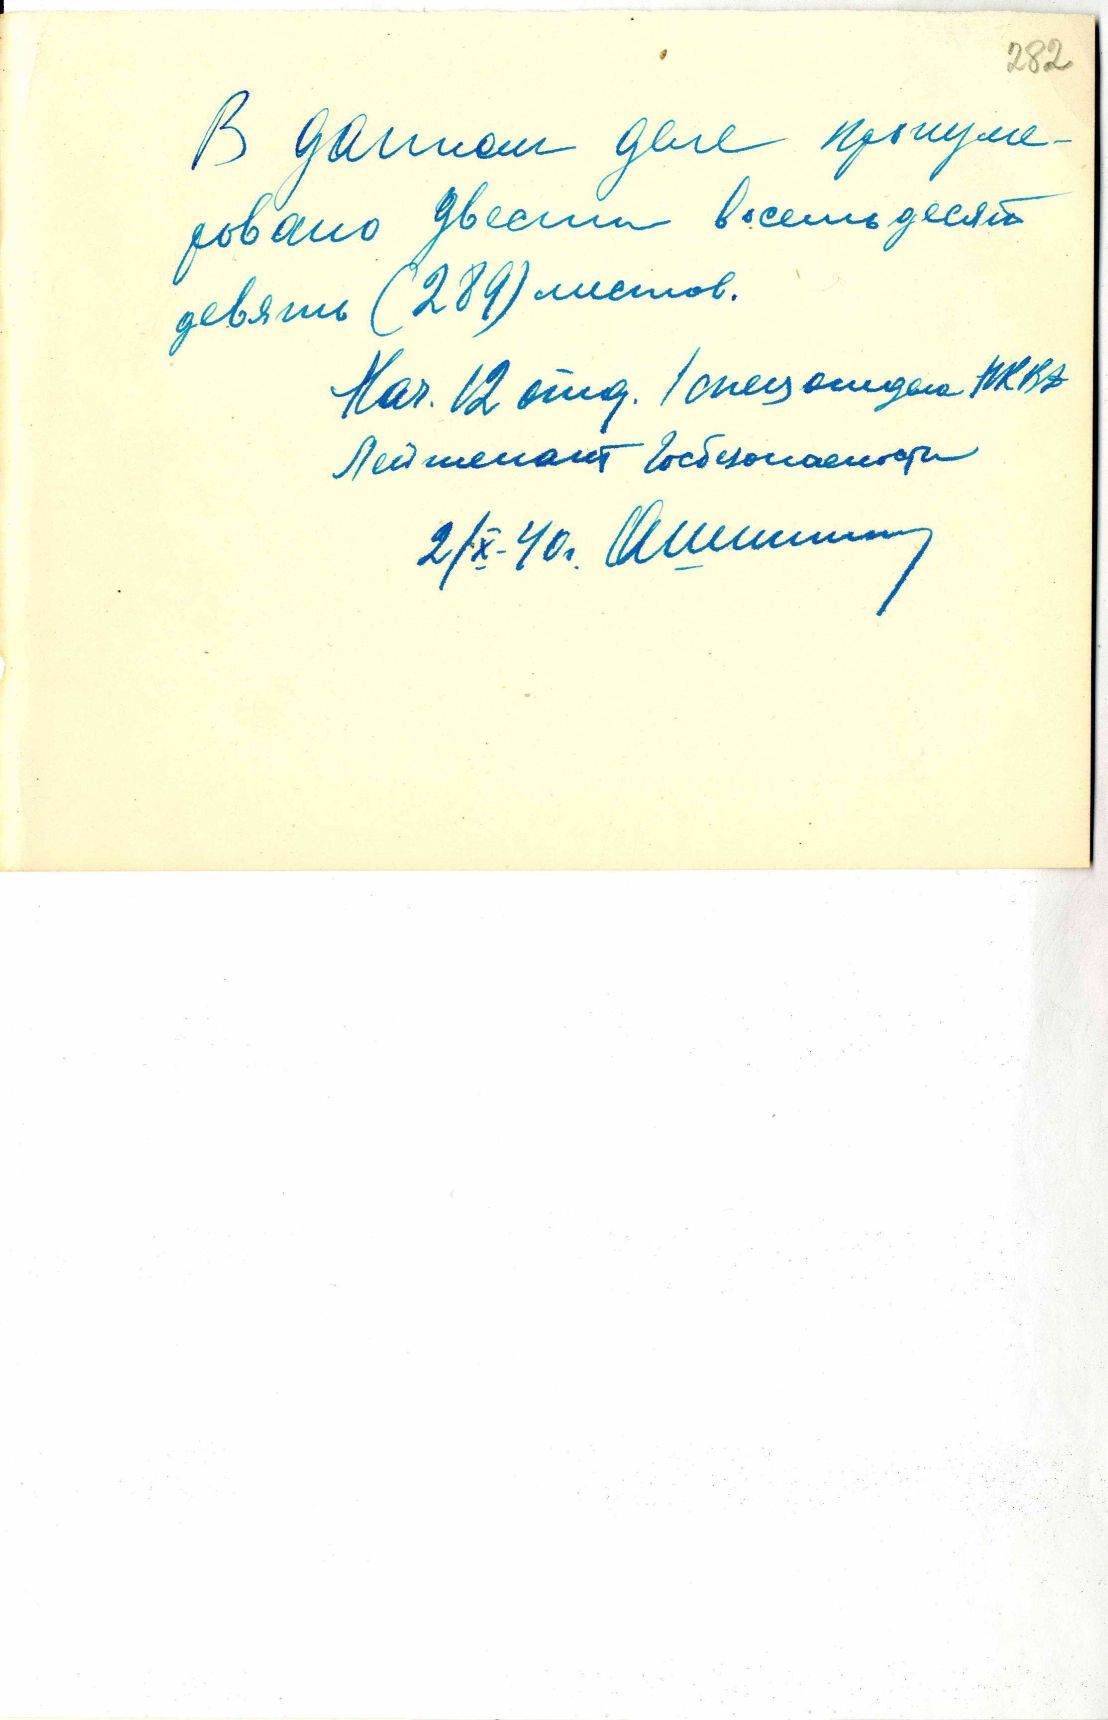 282
В данном деле пронуме-
ровано двести восемьдесят
девять (289) листов.
Нач. 12 отд. 1 спецотдела НКВД
Лейтенант Госбезопасности
2/X-40г.